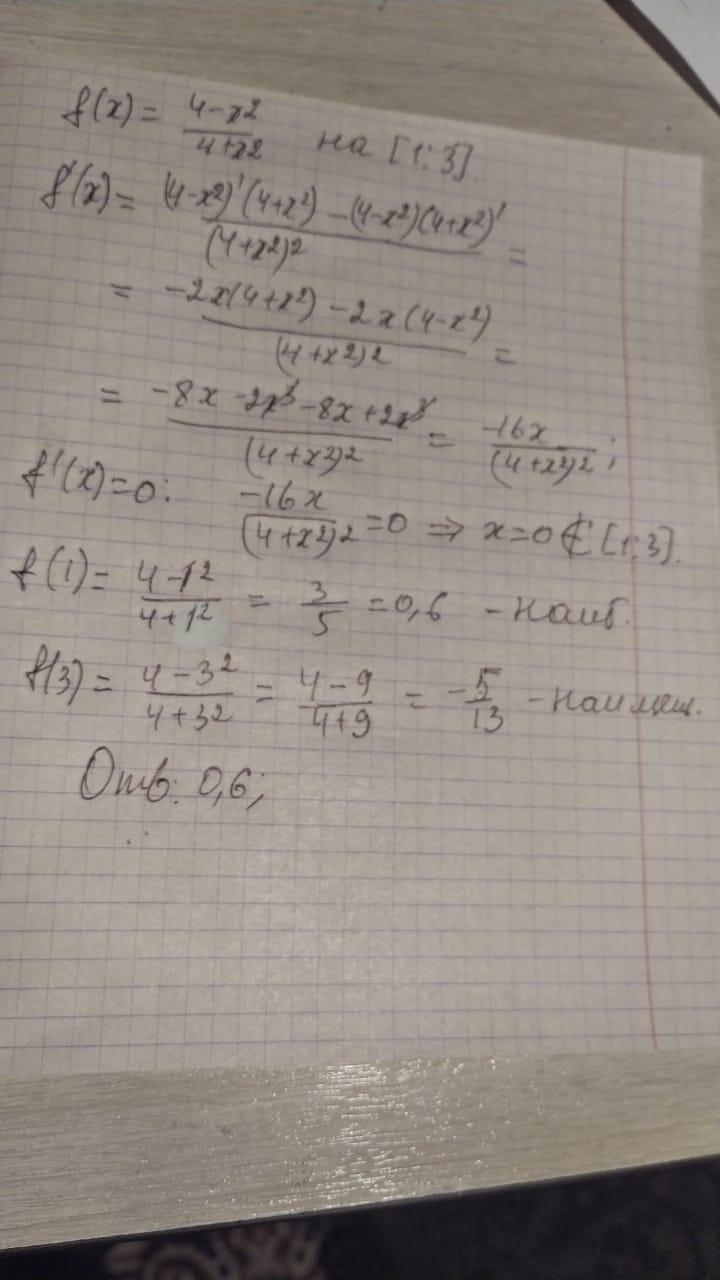 f(x) = (4-x²)/(4+x²) на [1; 3].
f'(x) = ((4-x²)'(4+x²) - (4-x²)(4+x²)')/(4+x²)² =
= (-2x(4+x²) - 2x(4-x²))/(4+x²)² =
= (-8x - 2x³ - 8x + 2x³)/(4+x²)² = -16x/(4+x²)²;
f'(x)=0: -16x/(4+x²)² = 0 ⇒ x=0 ∉ [1; 3].
f(1) = (4-1²)/(4+1²) = 3/5 = 0,6 - наиб.
f(3) = (4-3²)/(4+3²) = (4-9)/(4+9) = -5/13 - наимен.
Отв: 0,6;